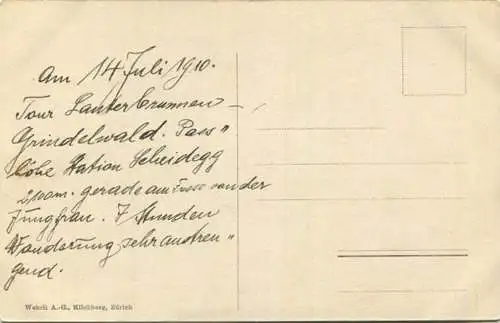 Am 14 Juli 1910.
Tour Lauterbrunnen –
Grindelwald. Pass"
höhe Station Scheidegg
2100m. gerade am Fusse von der
Jungfrau. 7 Stunden
Wanderung sehr anstren"
gend.
Wehrli A.-G., Kilchberg, Zürich